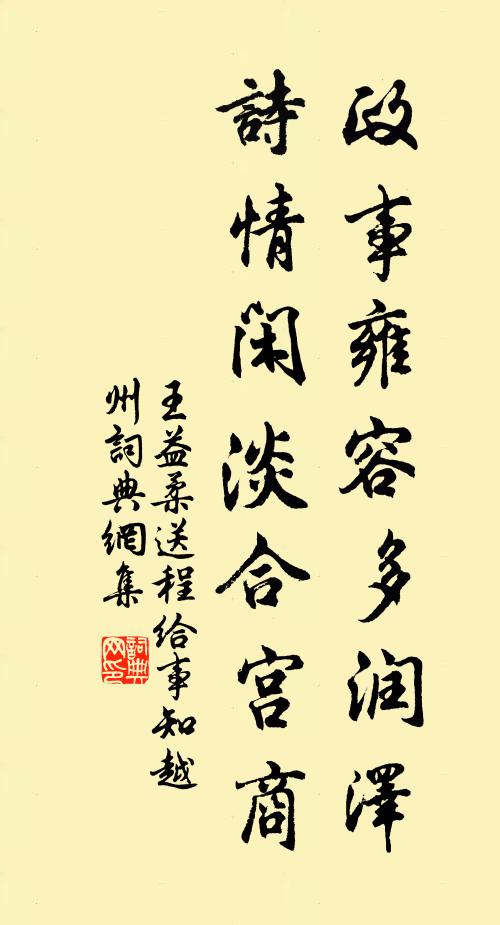 政事雍容多润澤
詩情闲淡合宫商
王益柔送程给事知越
州詞典網集
詞典网印